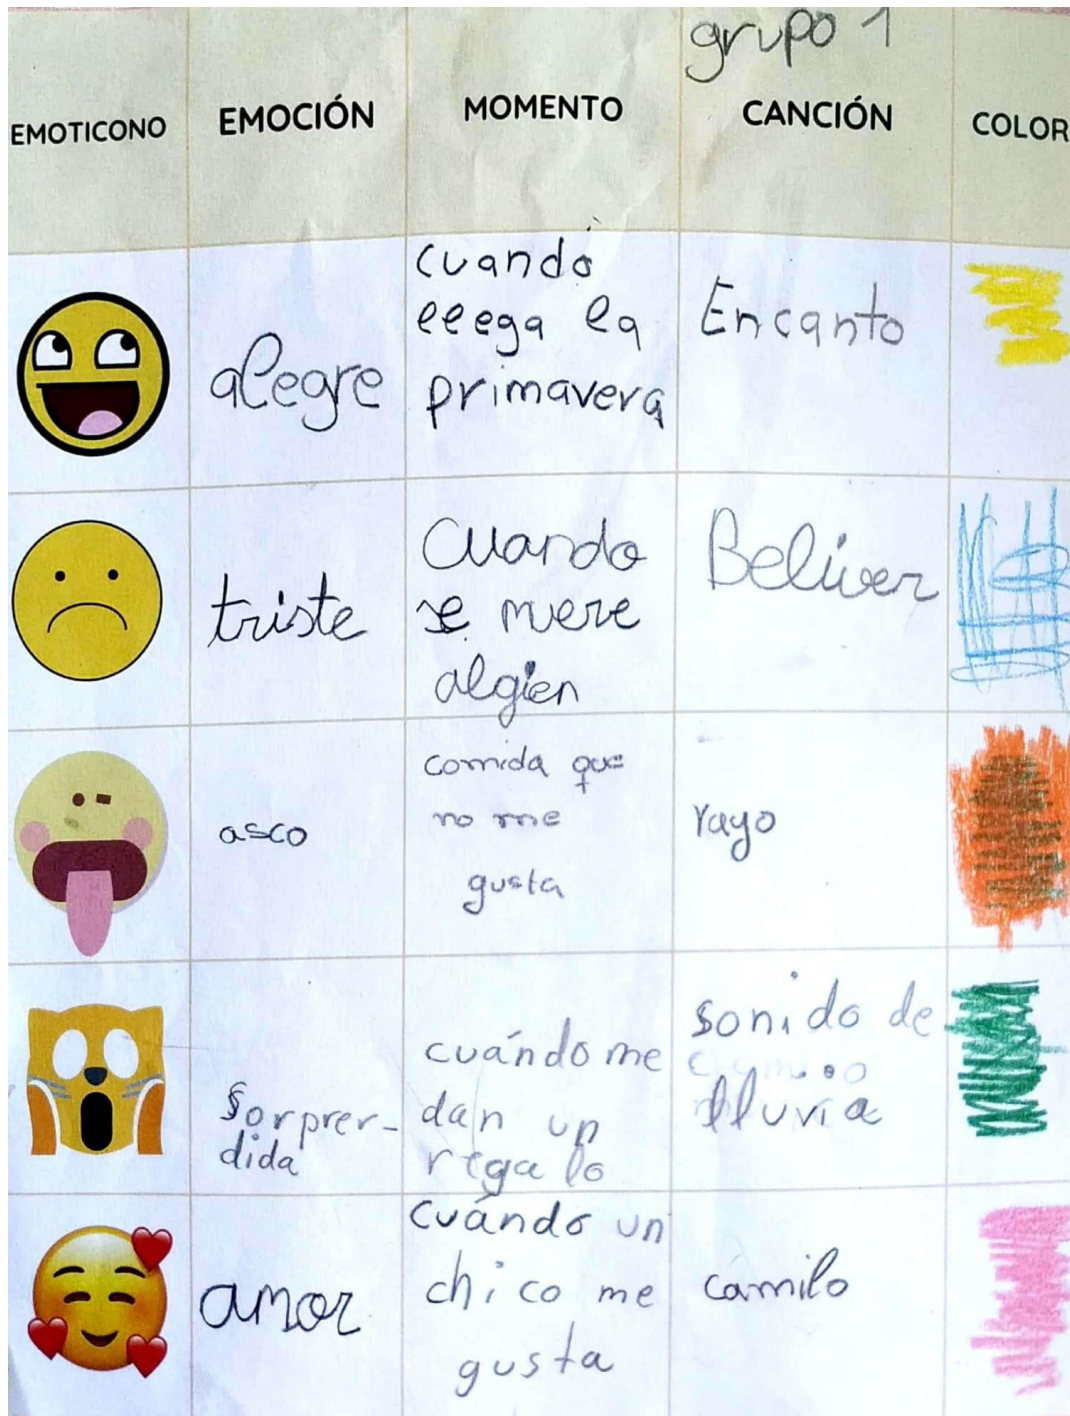 grupo 1
EMOTICONO EMOCIÓN MOMENTO CANCIÓN COLOR
alegre
cuando
llega la
primavera
Encanto
triste
Cuando
se muere
algien
Beliver
asco
comida que
no me
gusta
rayo
Sorprer-
dida
cuándo me
dan un
regalo
sonido de
lluvia
amor
cuándo un
chico me
gusta
camilo